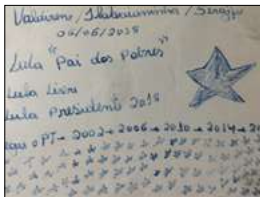 Valdirene / Itabaianinha / Sergipe
06/06/2018
Lula "Pai dos Pobres"
Lula Livre
Lula Presidente 2018
PT → 2002 → 2006 → 2010 → 2014 → 20